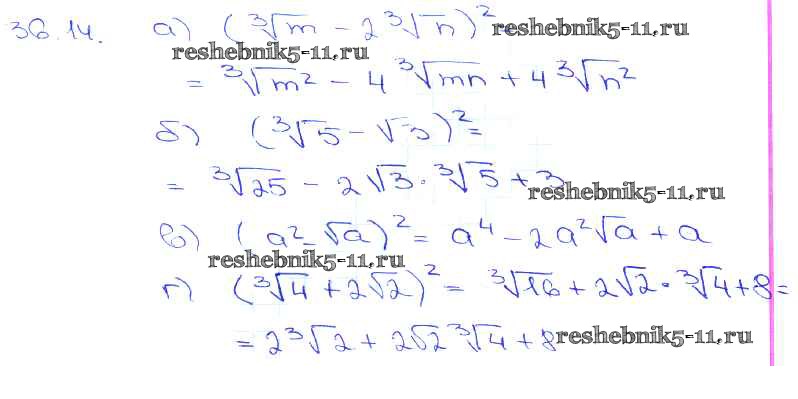 36.14. а) (∛m - 2∛n)² = reshebnik5-11.ru
reshebnik5-11.ru
= ∛m² - 4∛mn + 4∛n²
б) (∛5 - √3)² =
= ∛25 - 2√3·∛5 + 3
reshebnik5-11.ru
в) (a² - √a)² = a⁴ - 2a²√a + a
reshebnik5-11.ru
г) (∛4 + 2√2)² = ∛16 + 2√2·∛4 + 8 =
= 2∛2 + 2√2∛4 + 8 reshebnik5-11.ru